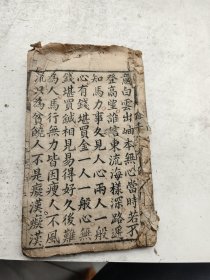 白雲出岫本無心當時若不
登高望誰信東流海樣深路遥
知馬力事久見人心兩人一般
心有錢堪買金一人一般心無
錢堪買鍼相見易得好久後難
為人馬行無力皆因瘦人不風
流只為貧饒人不是癡漢癡漢